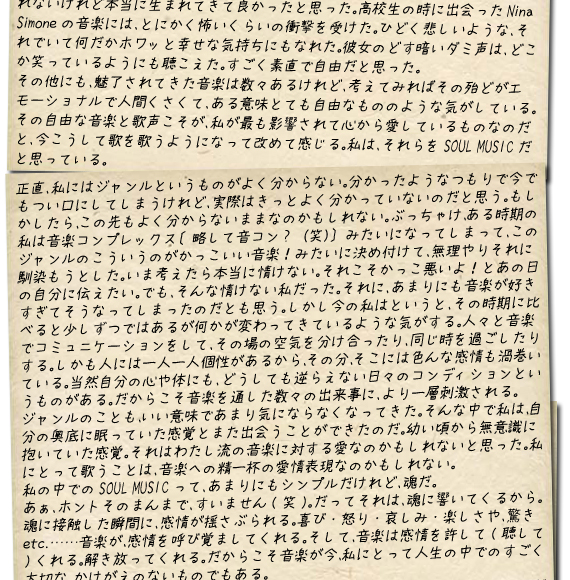 れないけれど本当に生まれてきて良かったと思った。高校生の時に出会ったNina
Simoneの音楽には、とにかく怖いくらいの衝撃を受けた。ひどく悲しいような、そ
れでいて何だかホワッと幸せな気持ちにもなれた。彼女のどす暗いダミ声は、どこ
か笑っているようにも聴こえた。すごく素直で自由だと思った。
その他にも、魅了されてきた音楽は数々あるけれど、考えてみればその殆どがエ
モーショナルで人間くさくて、ある意味とても自由なもののような気がしている。
その自由な音楽と歌声こそが、私が最も影響されて心から愛しているものなのだ
と、今こうして歌を歌うようになって改めて感じる。私は、それらを SOUL MUSIC だ
と思っている。
正直、私にはジャンルというものがよく分からない。分かったようなつもりで今で
もつい口にしてしまうけれど、実際はきっとよく分かっていないのだと思う。もし
かしたら、この先もよく分からないままなのかもしれない。ぶっちゃけ、ある時期の
私は音楽コンプレックス[略して音コン?(笑)]みたいになってしまって、この
ジャンルのこういうのがかっこいい音楽!みたいに決め付けて、無理やりそれに
馴染もうとした。いま考えたら本当に情けない。それこそかっこ悪いよ!とあの日
の自分に伝えたい。でも、そんな情けない私だった。それに、あまりにも音楽が好き
すぎてそうなってしまったのだとも思う。しかし今の私はというと、その時期に比
べると少しずつではあるが何かが変わってきているような気がする。人々と音楽
でコミュニケーションをして、その場の空気を分け合ったり、同じ時を過ごしたり
する。しかも人には一人一人個性があるから、その分、そこには色んな感情も渦巻い
ている。当然自分の心や体にも、どうしても逆らえない日々のコンディションとい
うものがある。だからこそ音楽を通した数々の出来事に、より一層刺激される。
ジャンルのことも、いい意味であまり気にならなくなってきた。そんな中で私は、自
分の奥底に眠っていた感覚とまた出会うことができたのだ。幼い頃から無意識に
抱いていた感覚。それはわたし流の音楽に対する愛なのかもしれないと思った。私
にとって歌うことは、音楽への精一杯の愛情表現なのかもしれない。
私の中での SOUL MUSIC って、あまりにもシンプルだけれど、魂だ。
あぁ、ホントそのまんまで、すいません(笑)。だってそれは、魂に響いてくるから。
魂に接触した瞬間に、感情が揺さぶられる。喜び・怒り・哀しみ・楽しさや、驚き
etc.……音楽が、感情を呼び覚ましてくれる。そして、音楽は感情を許して(聴して
)くれる。解き放ってくれる。だからこそ音楽が今、私にとって人生の中でのすごく
大切な、かけがえのないものでもある。